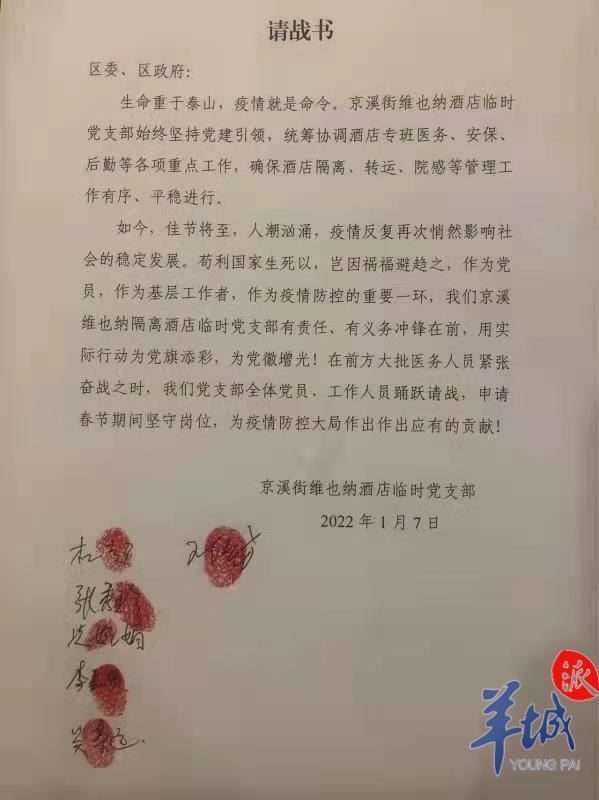 请战书
区委、区政府：
生命重于泰山，疫情就是命令。京溪街维也纳酒店临时
党支部始终坚持党建引领，统筹协调酒店专班医务、安保、
后勤等各项重点工作，确保酒店隔离、转运、院感等管理工
作有序、平稳进行。
如今，佳节将至，人潮汹涌，疫情反复再次悄然影响社
会的稳定发展。苟利国家生死以，岂因祸福避趋之，作为党
员，作为基层工作者，作为疫情防控的重要一环，我们京溪
维也纳隔离酒店临时党支部有责任、有义务冲锋在前，用实
际行动为党旗添彩，为党徽增光！在前方大批医务人员紧张
奋战之时，我们党支部全体党员、工作人员踊跃请战，申请
春节期间坚守岗位，为疫情防控大局作出作出应有的贡献！
京溪街维也纳酒店临时党支部
2022 年 1 月 7 日
张
李
吴
派
羊城
YOUNG PAI